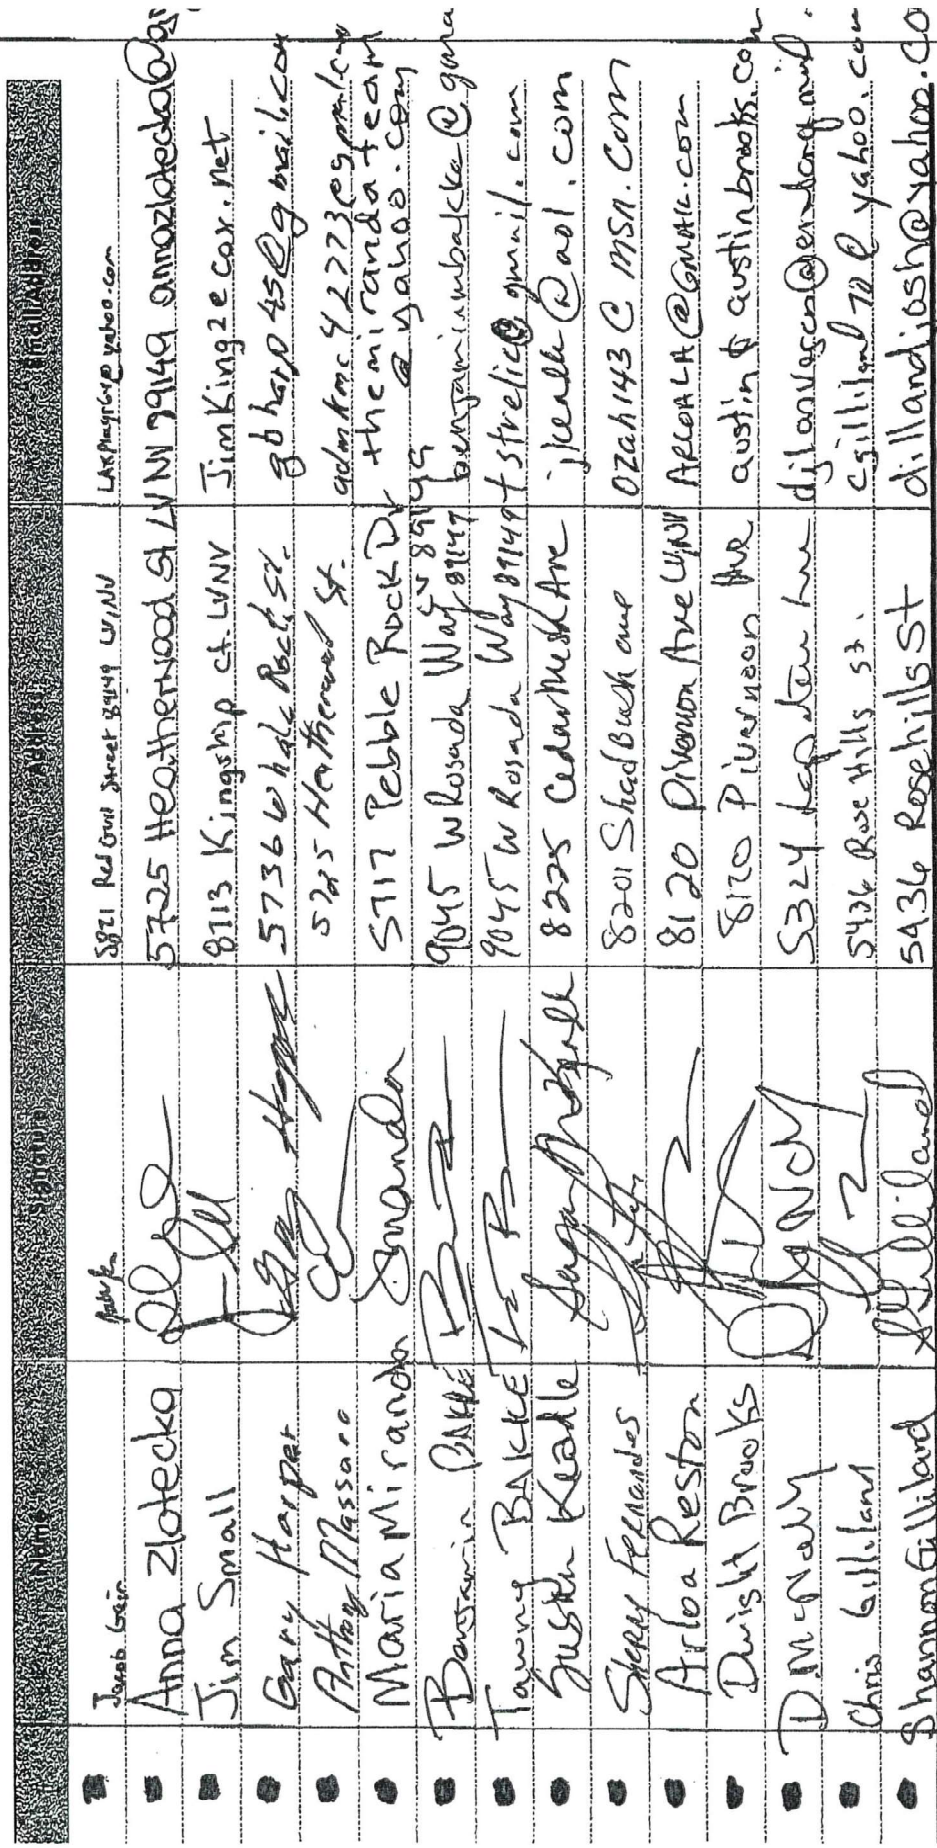 Name Signature Address Email Address
Jacob 5821 Red Street 89149 LV, NV @yahoo.com
Anna Zlotecka 5725 Heatherwood St LV NV 99149 annazlotecka@
Jim Small 8113 Kingship ct. LVNV JimKing2@cox.net
Gary Harper 5736 Whale Rock St. gbharp45@gmail.com
Anthony Massaro 5725 Heatherwood St.
Maria Miranda Miranda 5717 Pebble Rock Dr themirandateam
@yahoo.com
Benjamin BAKKE 9045 W Rosada Way 89149 benjaminmbakke@gma
Tawny BAKKE 9045 W Rosada Way 89149 tstrelic@gmail.com
Susan Keable 8225 Cedar Ave @aol.com
Sherry Fernandes 8201 Shad Bush ave ozah143@msn.com
Arloa Reston 8120 Ave LV, NV ARLOALA@GMAIL.COM
Dwight Brooks 8120 Ave austin@austinbrooks.com
D McNally 5324
Chris Gilliland 5436 Rose Hills St. cgilliland70@yahoo.com
Shannon Gilliland SGilliland 5436 Rosehills St dillandjosh@yahoo.co